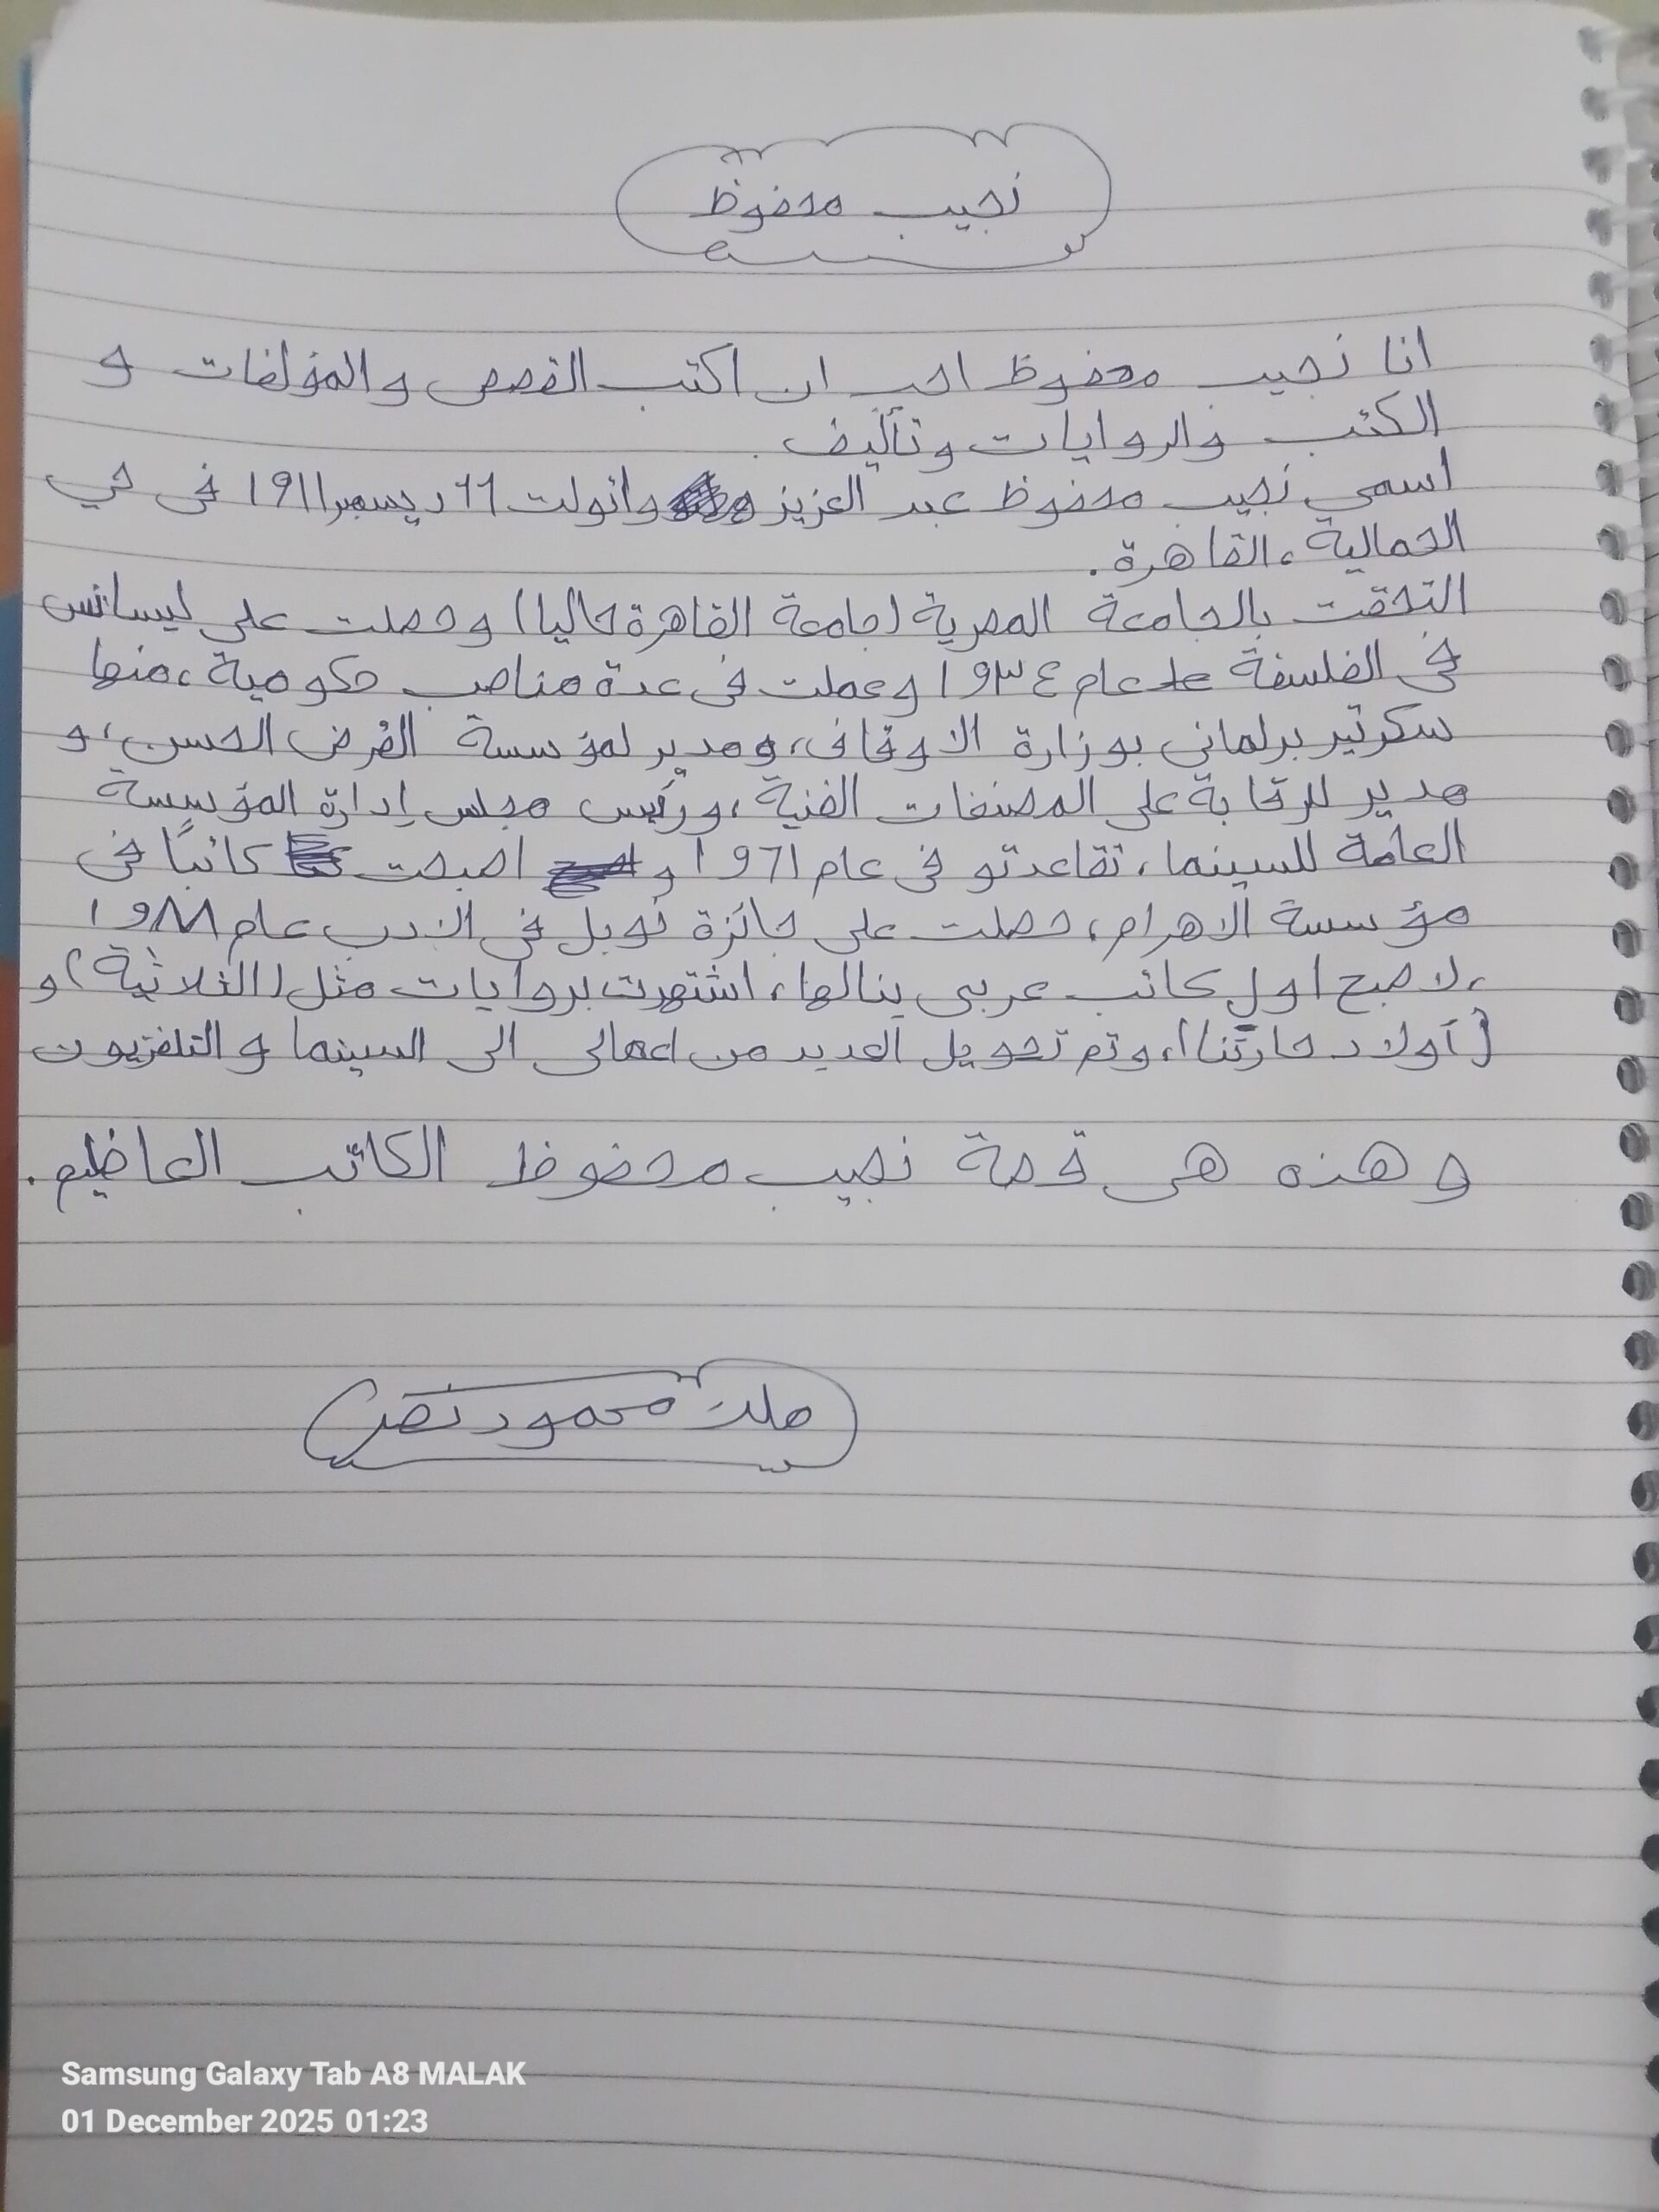 نجيب محفوظ
انا نجيب محفوظ احب ان اكتب القصص والمؤلفات و
الكتب والروايات وتأليف.
اسمي نجيب محفوظ عبد العزيز وانولت 11 ديسمبر 1911 فى حي
الجمالية، القاهرة.
التحقت بالجامعة المصرية (جامعة القاهرة حاليا) وحصلت على ليسانس
فى الفلسفة عام ١٩٣٤ وعملت فى عدة مناصب حكومية، منها
سكرتير برلمانى بوزارة الاوقاف، ومدير لمؤسسة القرض الحسن، و
مدير للرقابة على المصنفات الفنية، ورئيس مجلس إدارة المؤسسة
العامة للسينما، تقاعدتو فى عام ١٩٧١ و اصبحت كاتبًا فى
مؤسسة الاهرام، حصلت على جائزة نوبل فى الادب عام ١٩٨٨
، لاصبح اول كاتب عربى ينالها، اشتهرت بروايات مثل (الثلاثية) و
(أولاد حارتنا)، وتم تحويل العديد من اعمالى الى السينما والتلفزيون
وهذه هى قصة نجيب محفوظ الكاتب العاظيم.
ملك محمود نصر
Samsung Galaxy Tab A8 MALAK
01 December 2025 01:23